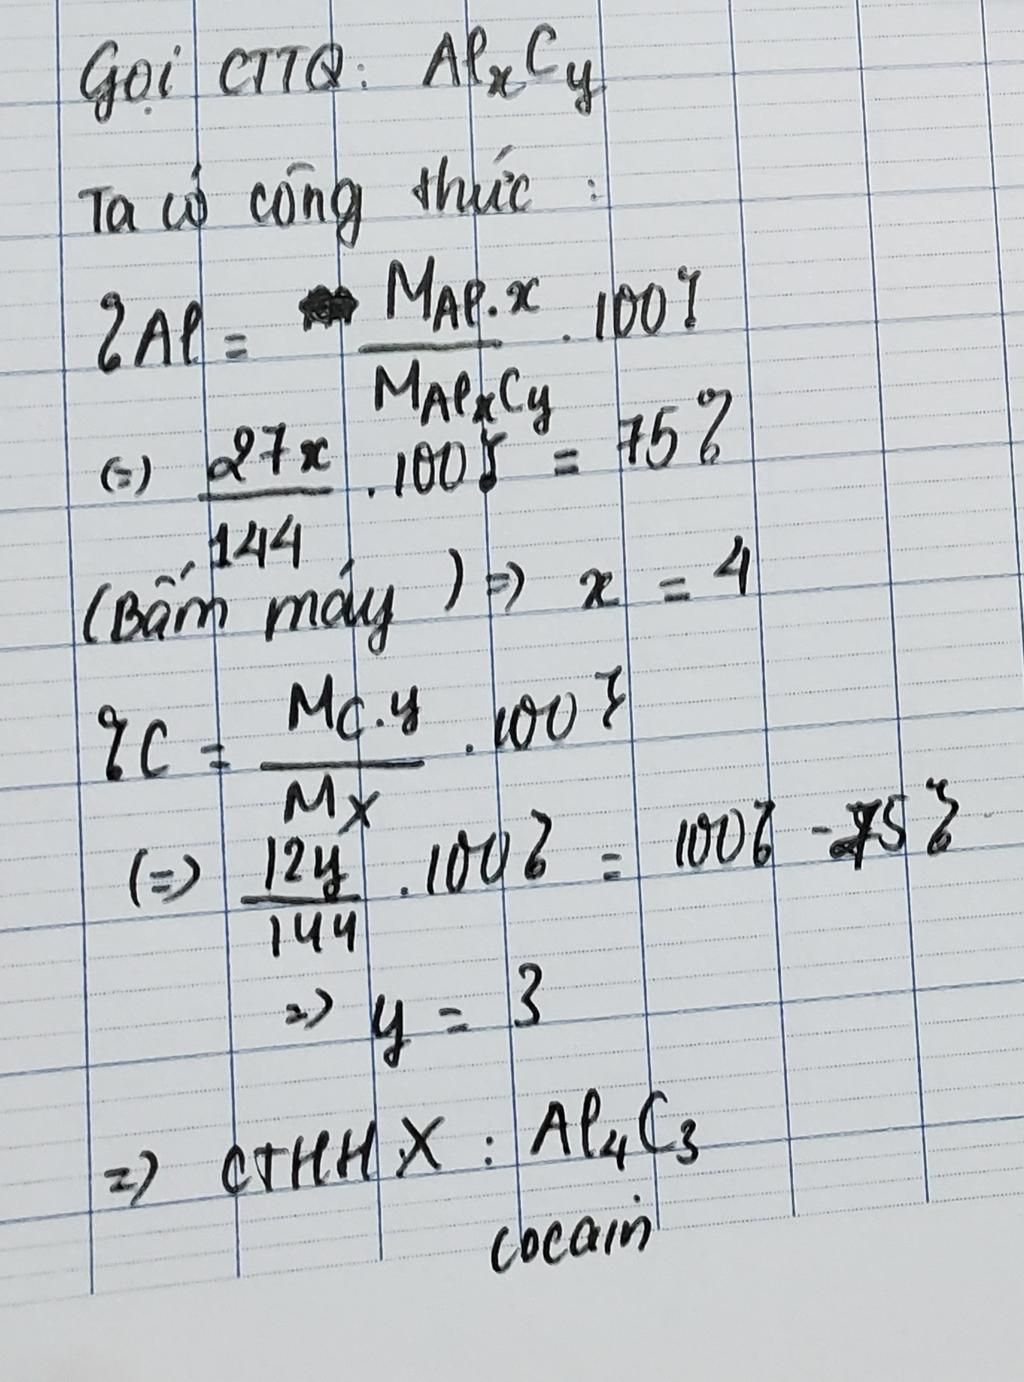 Gọi CTTQ: AlxCy
Ta có công thức :
%Al = MAl.x / MAlxCy . 100%
(=) 27x / 144 . 100% = 75%
(Bấm máy) => x = 4
%C = MC.y / MX . 100%
(=) 12y / 144 . 100% = 100% - 75%
=> y = 3
=> CTHH X : Al4C3
cocain